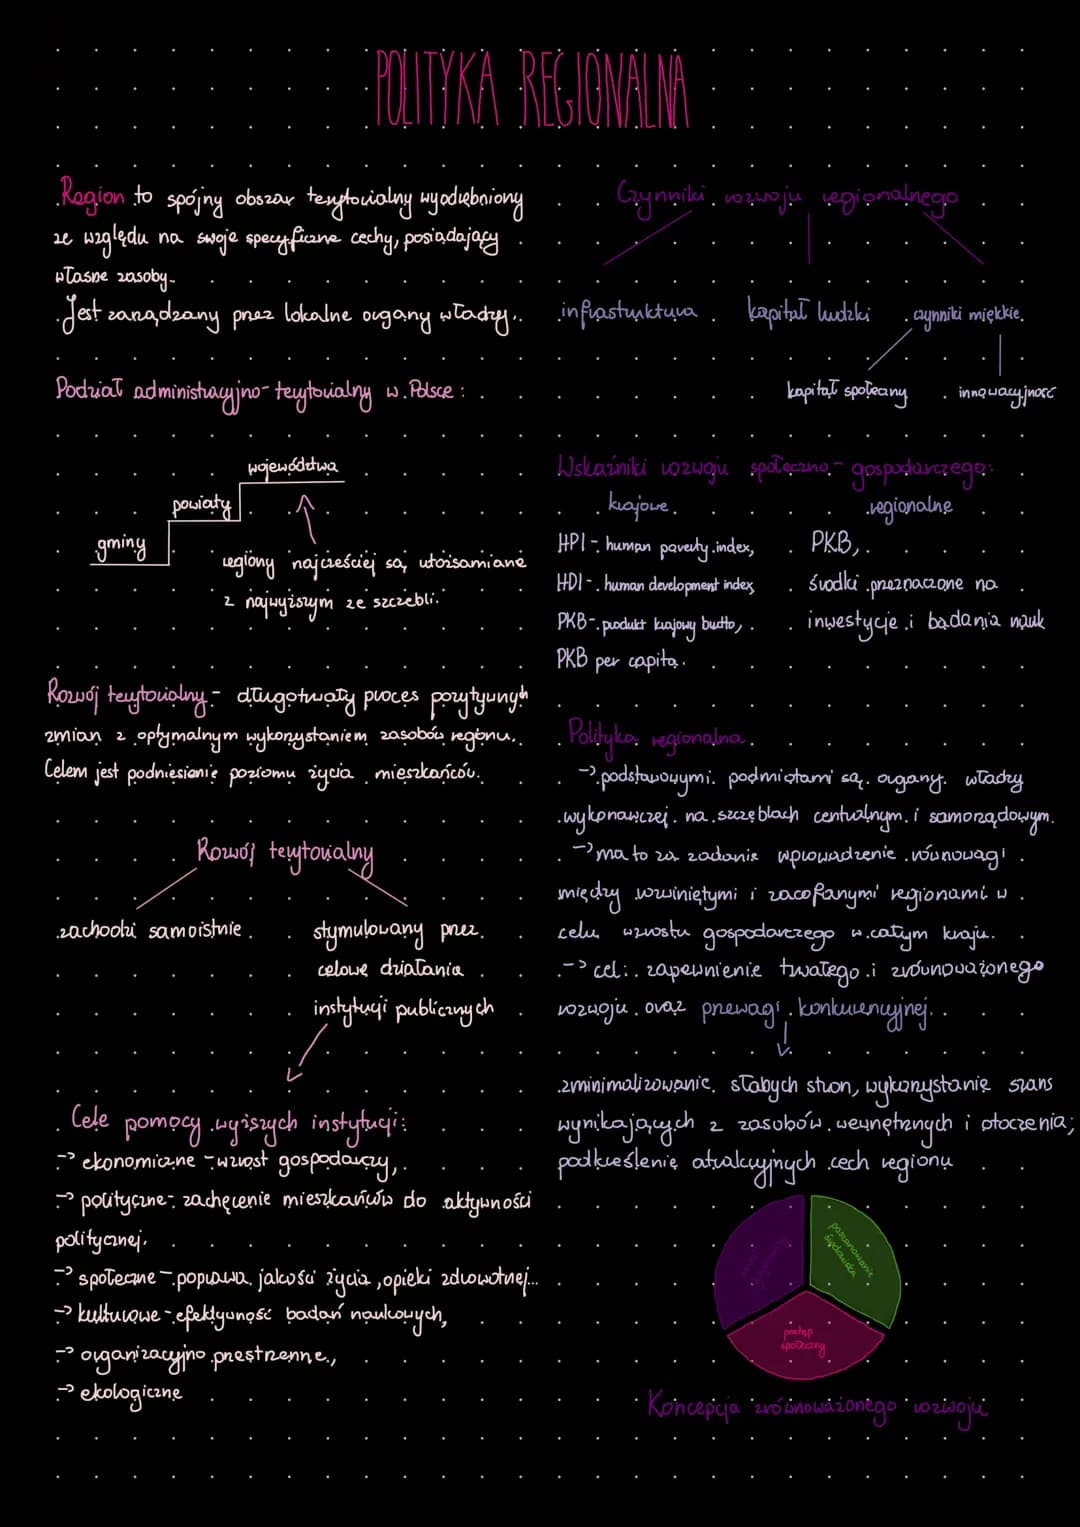 POLITYKA REGIONALNA
Region to spójny obszar terytorialny wyodrębniony
ze względu na swoje specyficzne cechy, posiadający
własne zasoby.
Jest zarządzany przez lokalne organy władzy.
Podział administracyjno-terytorialny w Polsce:
województwa
powiaty
gminy
regiony najcześciej są utożsamiane
z najwyższym ze szczebli.
Rozwój terytorialny - długotrwały proces pozytywnych
zmian z optymalnym wykorzystaniem zasobów regionu.
Celem jest podniesienie poziomu życia mieszkańców.
Rozwój terytorialny
zachodzi samoistnie
stymulowany przez
celowe działania
instytucji publicznych
Cele pomocy wyższych instytucji:
-> ekonomiczne - wzrost gospodarczy,
-> polityczne - zachęcenie mieszkańców do aktywności
politycznej.
-> społeczne - poprawa jakości życia, opieki zdrowotnej...
-> kulturowe - efektywność badań naukowych,
-> organizacyjno przestrzenne,
-> ekologiczne
Czynniki rozwoju regionalnego
infrastruktura kapitał ludzki czynniki miękkie
kapitał społeczny innowacyjność
Wskaźniki rozwoju społeczno-gospodarczego:
krajowe
HPI - human poverty index,
HDI - human development index,
PKB - produkt krajowy brutto,
PKB per capita.
regionalne
PKB,
środki przeznaczone na
inwestycje i badania nauk
Polityka regionalna
-> podstawowymi podmiotami są organy władzy
wykonawczej na szczeblach centralnym i samorządowym.
-> ma to za zadanie wprowadzenie równowagi
między rozwiniętymi i zacofanymi regionami w
celu wzrostu gospodarczego w całym kraju.
-> cel: zapewnienie trwałego i zrównoważonego
rozwoju oraz przewagi konkurencyjnej.
zminimalizowanie słabych stron, wykorzystanie szans
wynikających z zasobów wewnętrznych i otoczenia;
podkreślenie atrakcyjnych cech regionu
poszanowanie
środowiska
postęp
społeczny
Koncepcja zrównoważonego rozwoju